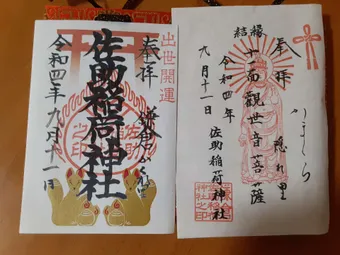 出世開運
奉拝
佐助稲荷神社
令和四年九月十一日
奉拝
かまくら
隠れ里
結縁
十一面観世音菩薩
佐助稲荷神社
令和四年
九月十一日